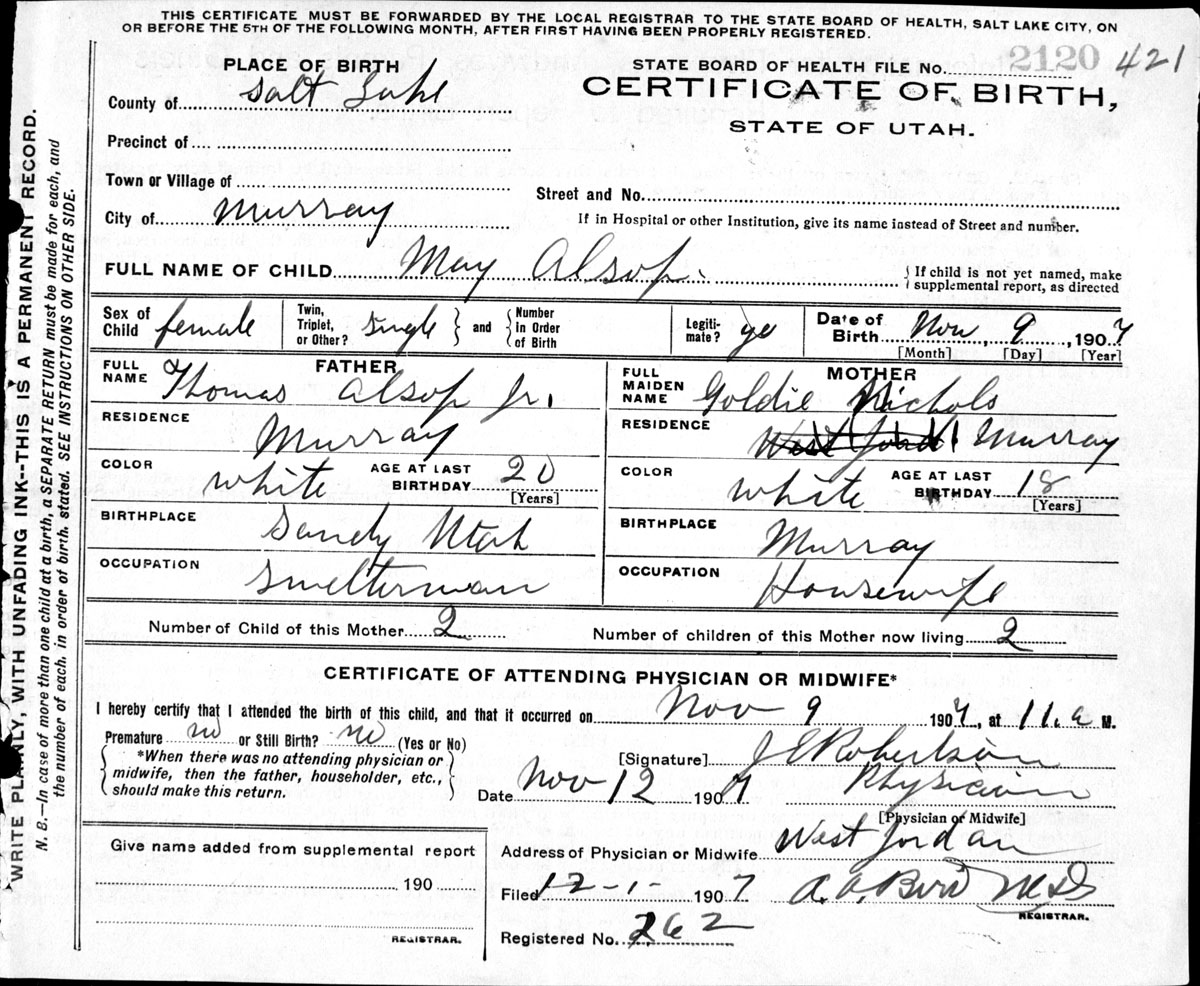 THIS CERTIFICATE MUST BE FORWARDED BY THE LOCAL REGISTRAR TO THE STATE BOARD OF HEALTH, SALT LAKE CITY, ON
OR BEFORE THE 5TH OF THE FOLLOWING MONTH, AFTER FIRST HAVING BEEN PROPERLY REGISTERED.
WRITE PLAINLY, WITH UNFADING INK--THIS IS A PERMANENT RECORD.
N. B.—In case of more than one child at a birth, a SEPARATE RETURN must be made for each, and
the number of each, in order of birth, stated. SEE INSTRUCTIONS ON OTHER SIDE.
PLACE OF BIRTH
County of Salt Lake
Precinct of
Town or Village of
City of Murray
STATE BOARD OF HEALTH FILE No. 2120 421
CERTIFICATE OF BIRTH,
STATE OF UTAH.
Street and No.
If in Hospital or other Institution, give its name instead of Street and number.
FULL NAME OF CHILD May Alsop. If child is not yet named, make
supplemental report, as directed
Sex of Child female Twin, Triplet, or Other? Single and Number in Order of Birth Legiti-mate? ye Date of Birth Nov, 9, 1907
[Month] [Day] [Year]
FATHER
FULL NAME Thomas Alsop Jr.
RESIDENCE Murray
COLOR white AGE AT LAST BIRTHDAY 20
[Years]
BIRTHPLACE Sandy Utah
OCCUPATION Smelterman
MOTHER
FULL MAIDEN NAME Goldie Nichols
RESIDENCE West Jord Murray
COLOR white AGE AT LAST BIRTHDAY 18
[Years]
BIRTHPLACE Murray
OCCUPATION Housewife
Number of Child of this Mother 2 Number of children of this Mother now living 2
CERTIFICATE OF ATTENDING PHYSICIAN OR MIDWIFE*
I hereby certify that I attended the birth of this child, and that it occurred on Nov 9 1907, at 11.a M.
Premature no or Still Birth? no (Yes or No)
*When there was no attending physician or
midwife, then the father, householder, etc.,
should make this return.
[Signature] J E Robertson
Date Nov 12 1907 Physician
[Physician or Midwife]
Address of Physician or Midwife West Jordan
Filed 12-1- 1907 A. O. Bird
REGISTRAR.
Registered No. 262
Give name added from supplemental report
190
REGISTRAR.